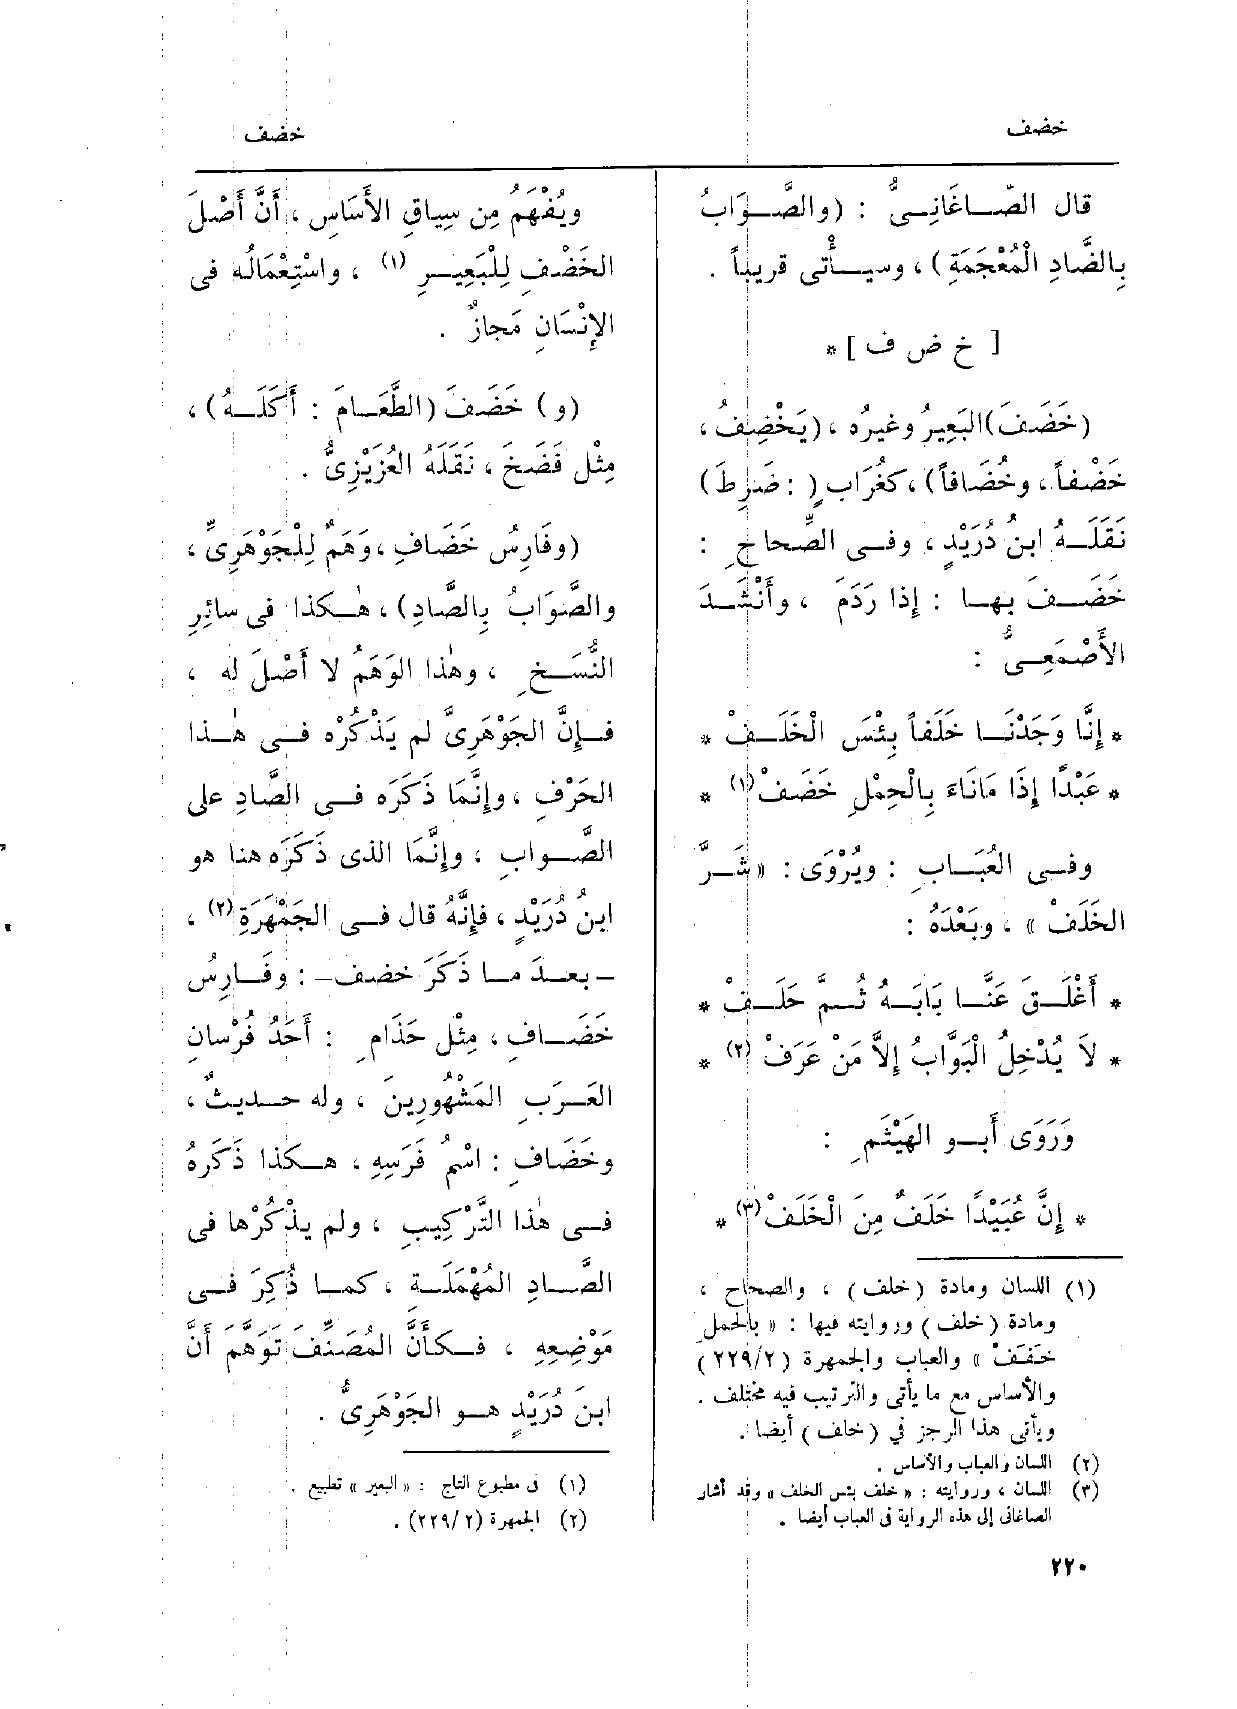 خضف
خضف
قال الصّاغَانِىُّ : (والصَّوَابُ
بِالضَّادِ الْمُعْجَمَةِ) ، وسيأْتى قريباً .
[ خ ض ف ] *
(خَضَفَ) البَعِيرُ وغيرُه ، (يَخْضِفُ ،
خَضْفاً ، وخُضَافاً) ، كغُرَابٍ ( : ضَرِطَ)
نَقَلَهُ ابنُ دُرَيْدٍ ، وفى الصِّحاحِ :
خَضَفَ بها : إِذا رَدَمَ ، وأَنْشَدَ
الأَصْمَعِىُّ :
* إِنَّا وَجَدْنَا خَلَفاً بِئْسَ الْخَلَفْ *
* عَبْدًا إِذَا مَانَاءَ بِالْحِمْلِ خَضَفْ (١) *
وفى العُبَابِ : ويُرْوَى : « شَرَّ
الخَلَفْ » ، وبَعْدَهُ :
* أَغْلَقَ عَنَّا بَابَهُ ثُمَّ حَلَفْ *
* لاَ يُدْخِلُ الْبَوَّابُ إِلاَّ مَنْ عَرَفْ (٢) *
وَرَوَى أَبو الهَيْثَمِ :
* إِنَّ عُبَيْدًا خَلَفٌ مِنَ الْخَلَفْ (٣) *
(١) اللسان ومادة (خلف) ، والصحاح ،
ومادة (خلف) وروايته فيها : « بالحمل
خَفَفْ » والعباب والجمهرة (٢٢٩/٢)
والأساس مع ما يأتى والترتيب فيه مختلف .
ويأتى هذا الرجز في (خلف) أيضا .
(٢) اللسان والعباب والأساس .
(٣) اللسان ، وروايته : « خلف بئس الخلف » وقد أشار
الصاغانى إلى هذه الرواية فى العباب أيضا .
ويُفْهَمُ مِن سِياقِ الأَسَاسِ ، أَنَّ أَصْلَ
الخَضْفِ لِلْبَعِيرِ (١) ، واسْتِعْمَالُه فى
الإِنْسَانِ مَجازٌ .
(و) خَضَفَ (الطَّعَامَ : أَكَلَهُ) ،
مِثْل فَضَخَ ، نَقَلَهُ العُزَيْزِىُّ .
(وفَارِسُ خَضَافِ ، وَهَمٌ لِلْجَوْهَرِىِّ ،
والصَّوَابُ بِالصَّادِ) ، هٰكذا فى سائِرِ
النُّسَخِ ، وهٰذا الوَهَمُ لا أَصْلَ له ،
فإِنَّ الجَوْهَرِىَّ لم يَذْكُرْه فى هٰذا
الحَرْفِ ، وإِنَّمَا ذَكَرَه فى الصَّادِ على
الصَّوابِ ، وإِنَّمَا الذى ذَكَرَه هنا هو
ابنُ دُرَيْدٍ ، فإِنَّهُ قال فى الجَمْهَرَةِ (٢) ،
– بعدَ ما ذَكَرَ خضف – : وفَارِسُ
خَضَافِ ، مِثْل حَذَامِ : أَحَدُ فُرْسانِ
العَرَبِ المَشْهُورِينَ ، وله حديثٌ ،
وخَضَافِ : اسْمُ فَرَسِهِ ، هكذا ذَكَرهُ
فى هٰذا التَّرْكِيبِ ، ولم يذْكُرْها فى
الصَّادِ المُهْمَلَةِ ، كما ذُكِرَ فى
مَوْضِعِهِ ، فكأَنَّ المُصَنِّفَ تَوَهَّم أَنَّ
ابنَ دُرَيْدٍ هو الجَوْهَرِىُّ .
(١) فى مطبوع التاج : « البعير » تطبيع .
(٢) الجمهرة (٢٢٩/٢) .
٢٢٠